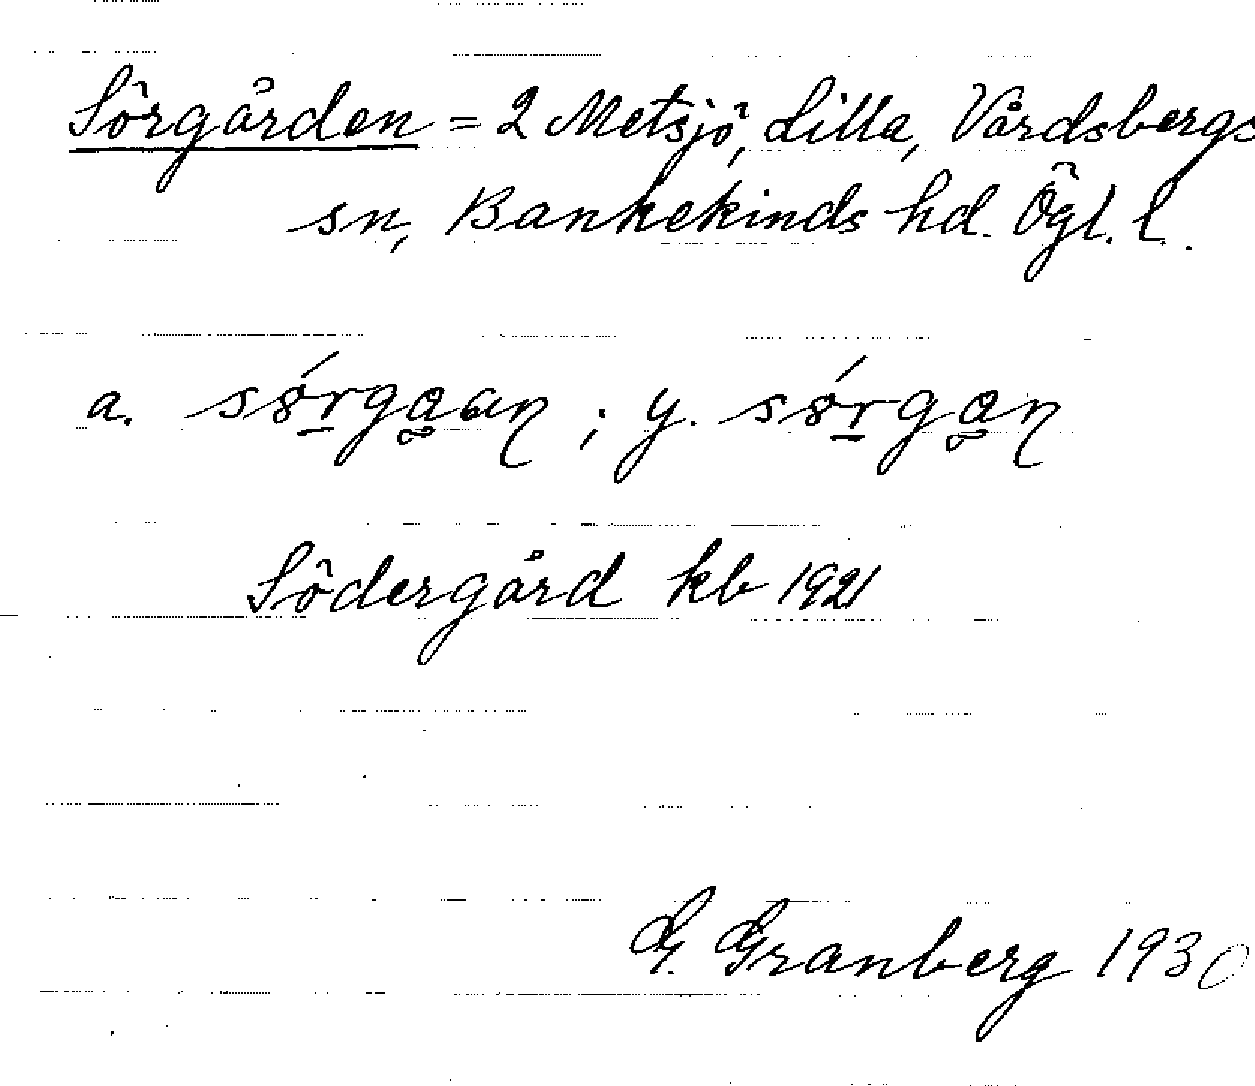 Sörgården = 2 Metsjö, Lilla, Vårdsbergs
sn, Bankekinds hd. Ögl. l.
a. ; y.
Södergård kb 1921
G. Granberg 1930